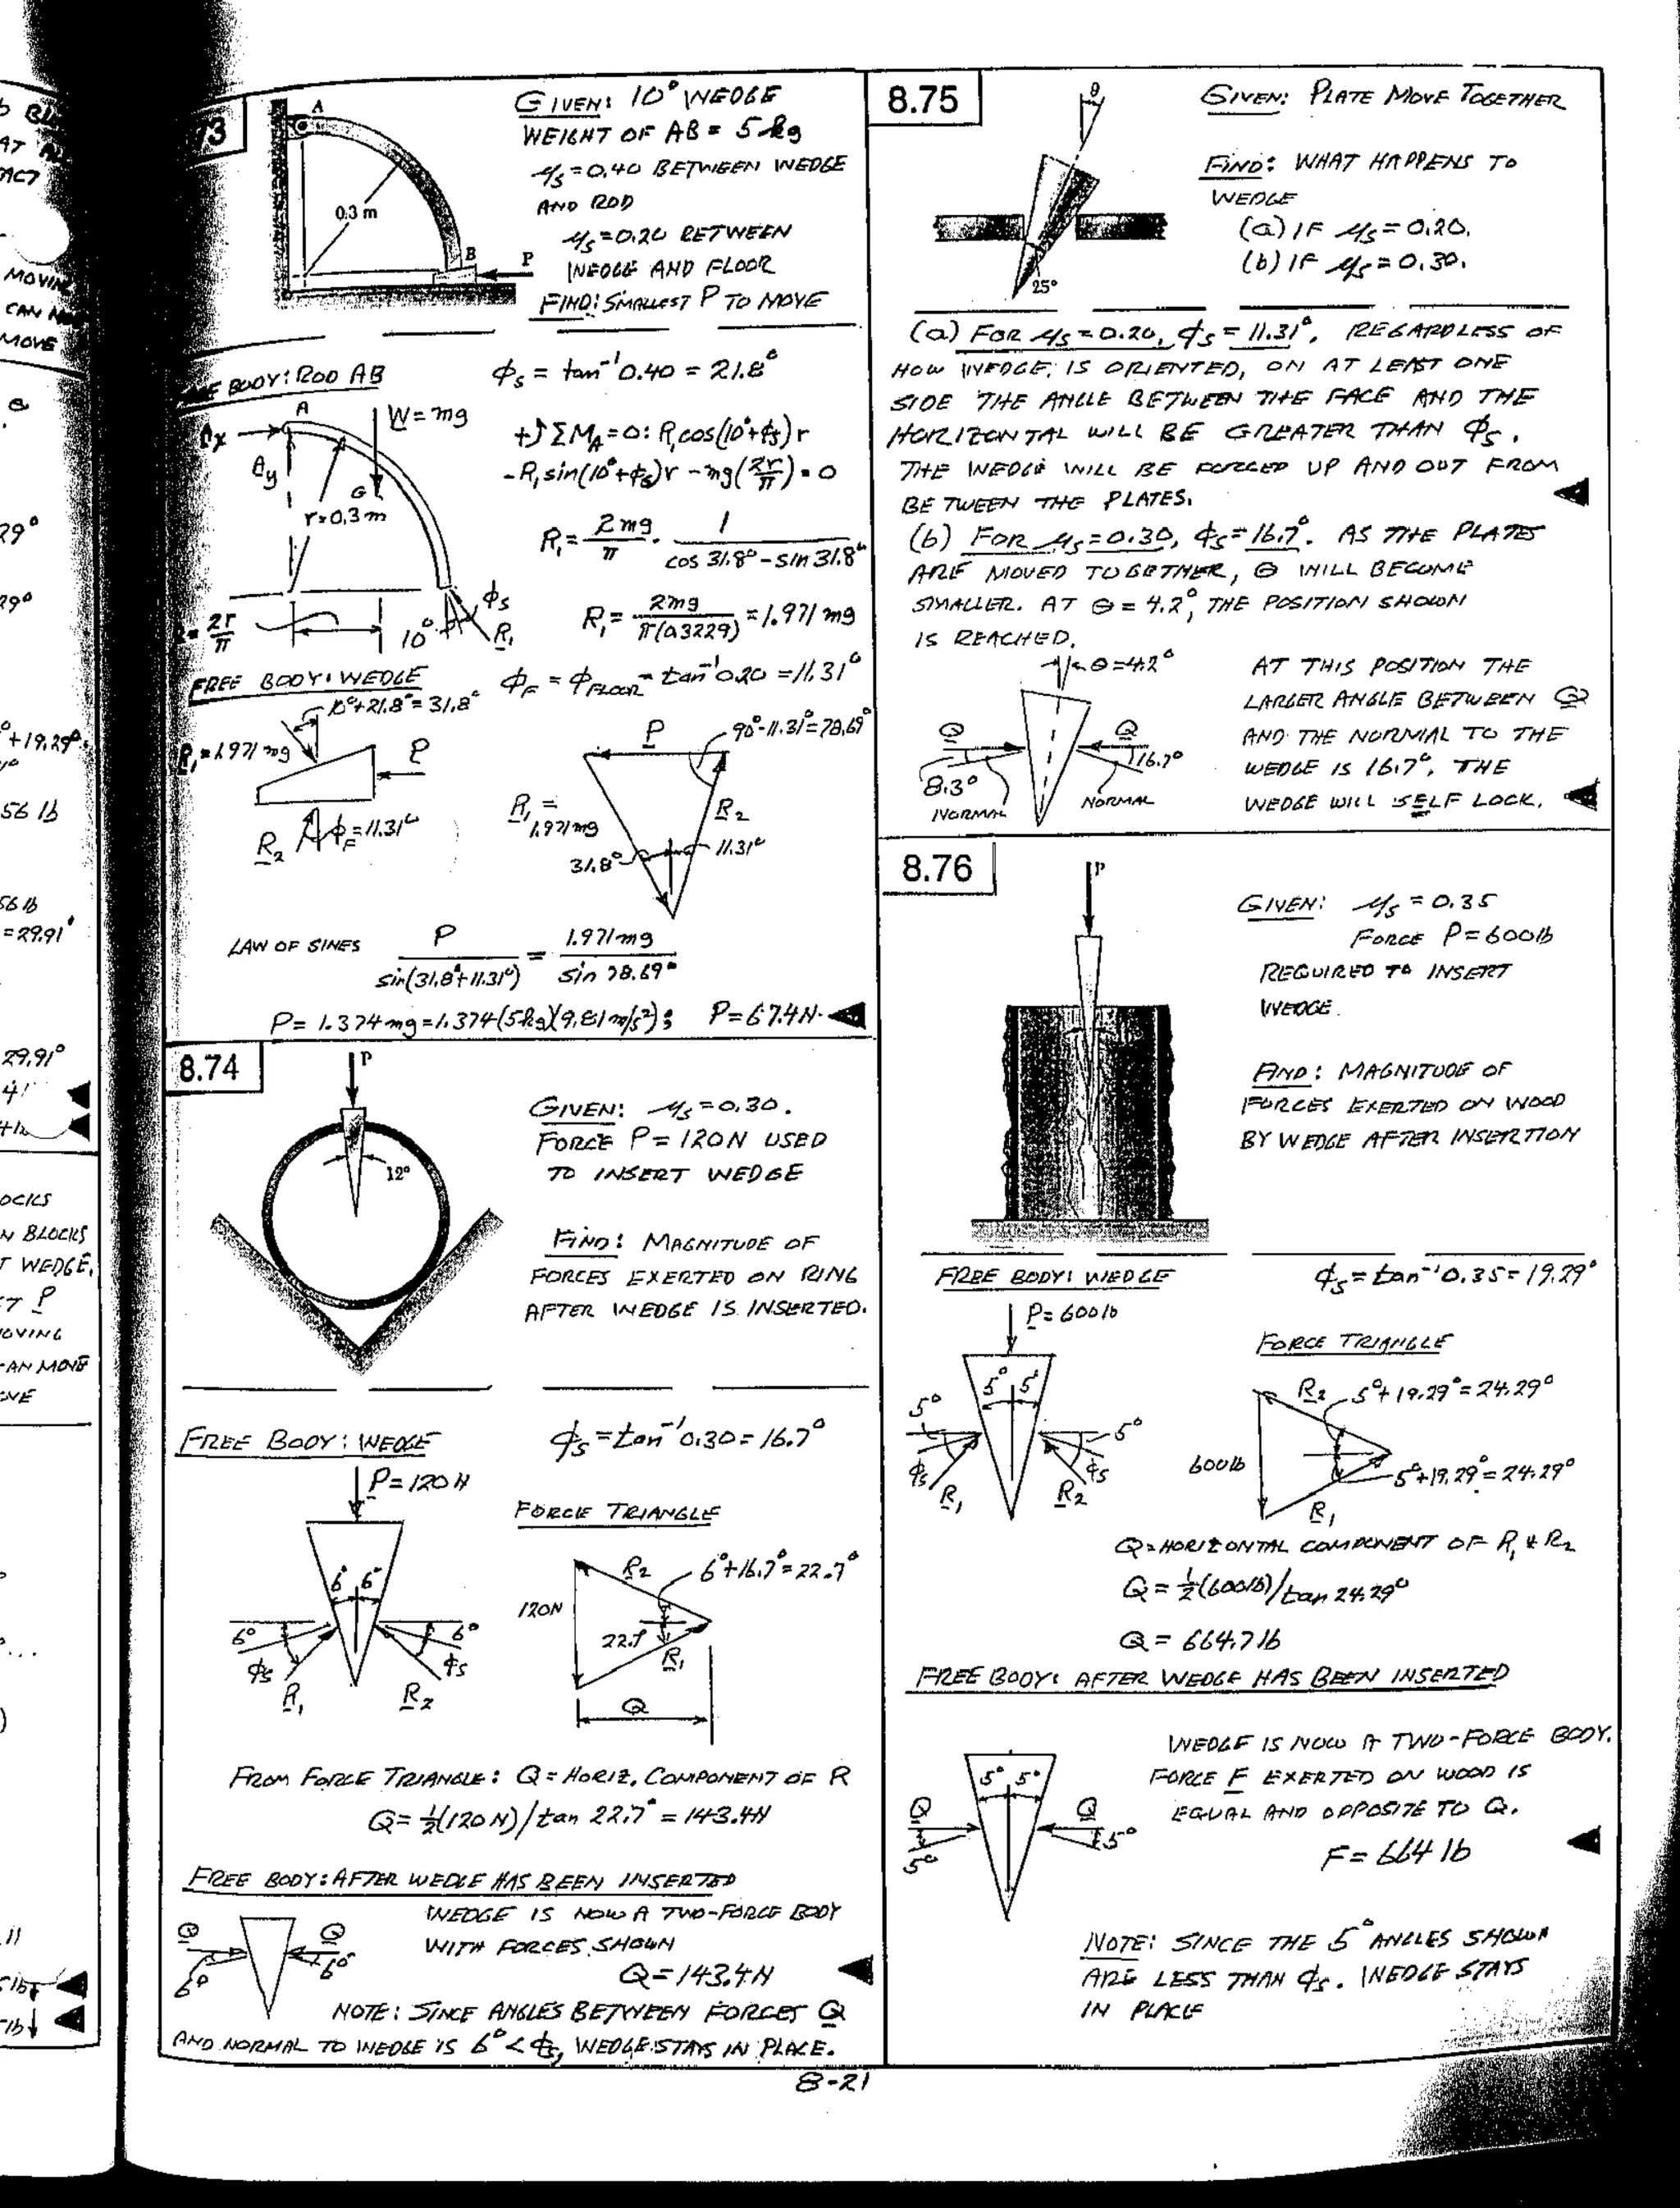 73
GIVEN: 10° WEDGE
WEIGHT OF AB = 5 kg
μs = 0.40 BETWEEN WEDGE
AND ROD
μs = 0.20 BETWEEN
WEDGE AND FLOOR
FIND: SMALLEST P TO MOVE
A
0.3 m
B
P
BODY: ROD AB
ϕs = tan⁻¹ 0.40 = 21.8°
A
W = mg
Ay
G
r = 0.3 m
+⤴ ΣMA = 0: R₁ cos(10°+ϕs) r
- R₁ sin(10°+ϕs) r - mg(2r/π) = 0
R₁ = 2mg/π · 1/(cos 31.8° - sin 31.8°)
R₁ = 2mg/(π(0.3229)) = 1.971 mg
= 2r/π
10°
ϕs
R₁
FREE BODY: WEDGE
ϕF = ϕFLOOR = tan⁻¹ 0.20 = 11.31°
10°+21.8° = 31.8°
R₁ = 1.971 mg
P
R₂
ϕF = 11.31°
P
90°-11.31° = 78.69°
R₁ =
1.971 mg
R₂
31.8°
11.31°
LAW OF SINES P/sin(31.8°+11.31°) = 1.971 mg/sin 78.69°
P = 1.374 mg = 1.374(5kg)(9.81 m/s²); P = 67.4 N
8.74
P
12°
GIVEN: μs = 0.30.
FORCE P = 120 N USED
TO INSERT WEDGE
FIND: MAGNITUDE OF
FORCES EXERTED ON RING
AFTER WEDGE IS INSERTED.
FREE BODY: WEDGE
ϕs = tan⁻¹ 0.30 = 16.7°
P = 120 N
6° 6°
6°
ϕs
R₁
6°
ϕs
R₂
FORCE TRIANGLE
R₂
6°+16.7° = 22.7°
120N
22.7°
R₁
Q
FROM FORCE TRIANGLE: Q = HORIZ. COMPONENT OF R
Q = ½(120 N)/tan 22.7° = 143.4N
FREE BODY: AFTER WEDGE HAS BEEN INSERTED
WEDGE IS NOW A TWO-FORCE BODY
WITH FORCES SHOWN
Q = 143.4 N
Q
6°
Q
6°
NOTE: SINCE ANGLES BETWEEN FORCES Q
AND NORMAL TO WEDGE IS 6° < ϕs, WEDGE STAYS IN PLACE.
8.75
GIVEN: PLATE MOVE TOGETHER
FIND: WHAT HAPPENS TO
WEDGE
(a) IF μs = 0.20.
(b) IF μs = 0.30.
θ
25°
(a) FOR μs = 0.20, ϕs = 11.31°. REGARDLESS OF
HOW WEDGE IS ORIENTED, ON AT LEAST ONE
SIDE THE ANGLE BETWEEN THE FACE AND THE
HORIZONTAL WILL BE GREATER THAN ϕs.
THE WEDGE WILL BE FORCED UP AND OUT FROM
BETWEEN THE PLATES.
(b) FOR μs = 0.30, ϕs = 16.7°. AS THE PLATES
ARE MOVED TOGETHER, θ WILL BECOME
SMALLER. AT θ = 4.2°, THE POSITION SHOWN
IS REACHED.
θ = 4.2°
Q
8.3°
NORMAL
Q
16.7°
NORMAL
AT THIS POSITION THE
LARGER ANGLE BETWEEN Q
AND THE NORMAL TO THE
WEDGE IS 16.7°. THE
WEDGE WILL SELF LOCK.
8.76
P
GIVEN: μs = 0.35
FORCE P = 600 lb
REQUIRED TO INSERT
WEDGE.
FIND: MAGNITUDE OF
FORCES EXERTED ON WOOD
BY WEDGE AFTER INSERTION
FREE BODY: WEDGE
ϕs = tan⁻¹ 0.35 = 19.29°
P = 600 lb
5° 5°
5°
ϕs
R₁
5°
ϕs
R₂
FORCE TRIANGLE
R₂
5°+19.29° = 24.29°
600 lb
5°+19.29° = 24.29°
R₁
Q = HORIZONTAL COMPONENT OF R₁ & R₂
Q = ½(600 lb)/tan 24.29°
Q = 664.7 lb
FREE BODY: AFTER WEDGE HAS BEEN INSERTED
5° 5°
Q
5°
Q
5°
WEDGE IS NOW A TWO-FORCE BODY.
FORCE F EXERTED ON WOOD IS
EQUAL AND OPPOSITE TO Q.
F = 664 lb
NOTE: SINCE THE 5° ANGLES SHOWN
ARE LESS THAN ϕs. WEDGE STAYS
IN PLACE
8-21
MOVE
29°
29°
+19.29°
56 lb
56 lb
= 29.91°
29.91°
OCKS
N BLOCKS
T WEDGE.
P
OVING
AN MOVE